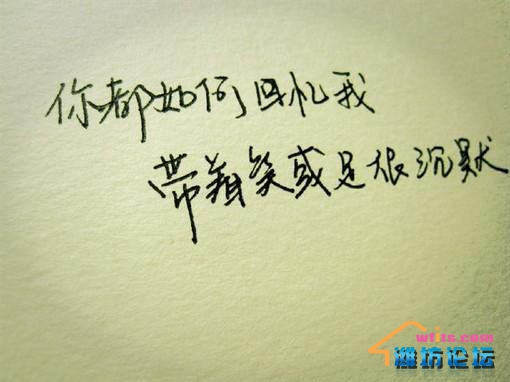 你都如何回忆我
带著笑或是很沉默
wfits.com
潍坊论坛